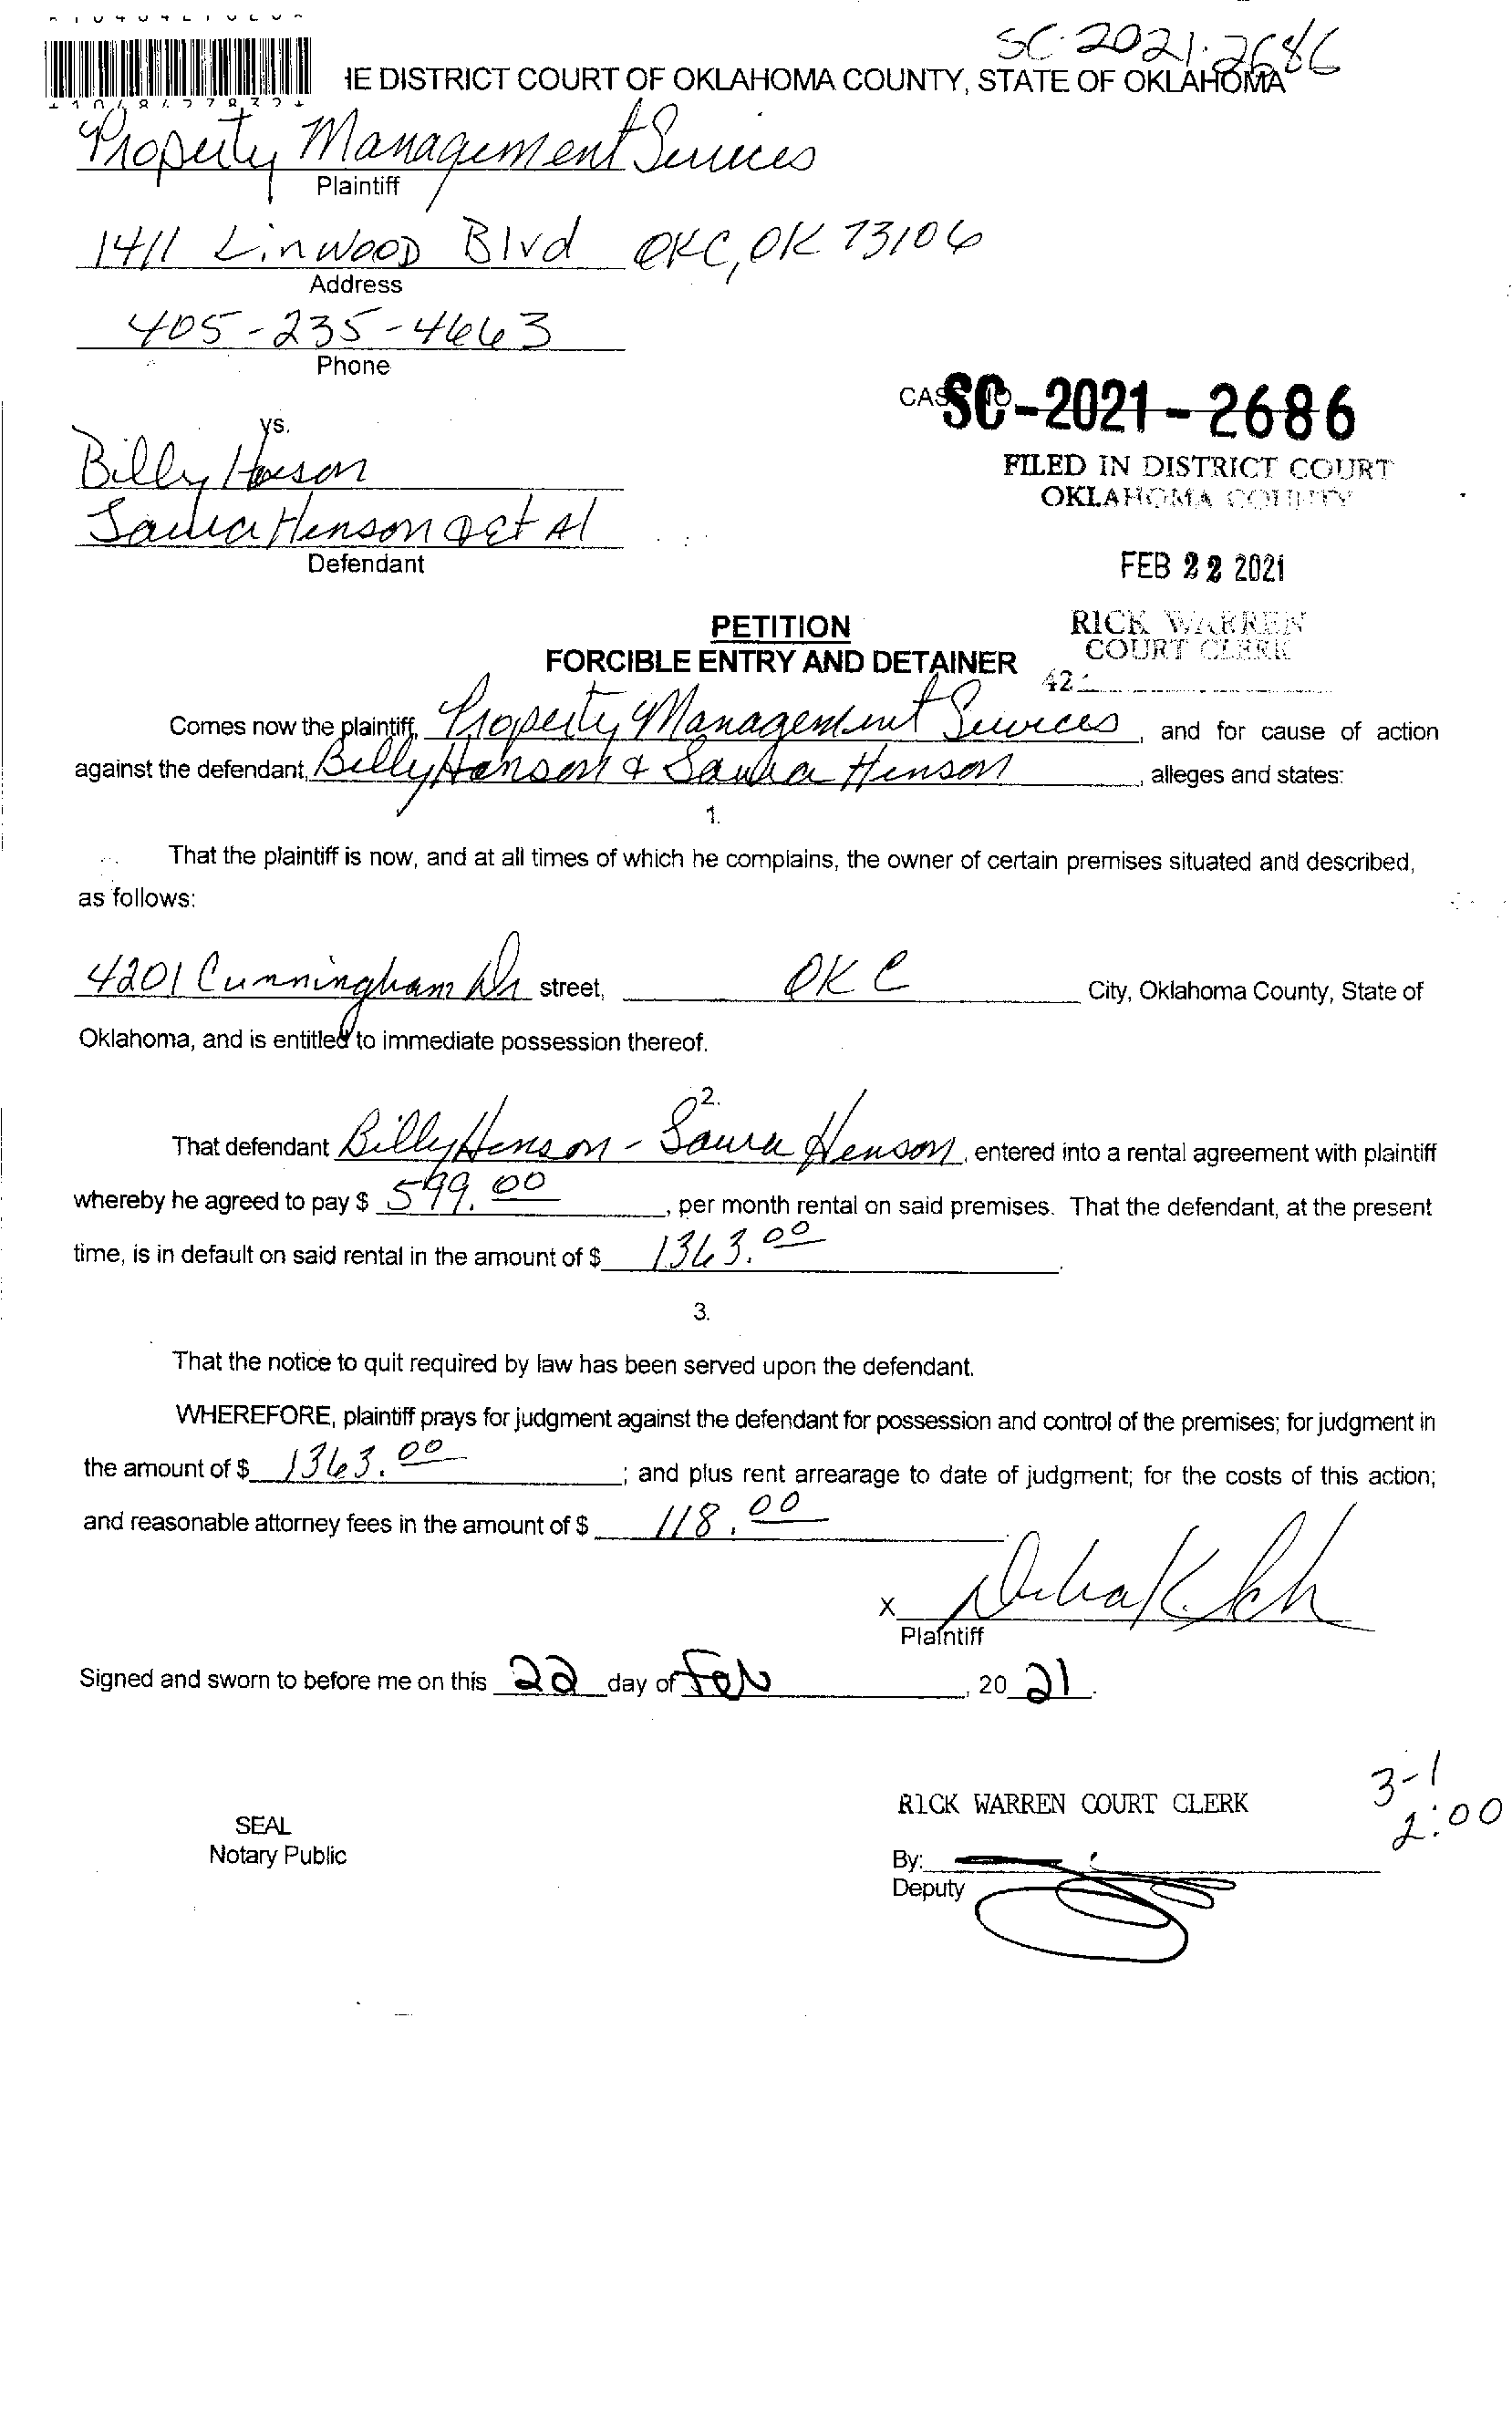 SC-2021-2686
*1048427832*
HE DISTRICT COURT OF OKLAHOMA COUNTY, STATE OF OKLAHOMA
Property Management Services
Plaintiff
1411 Linwood Blvd OKC, OK 73106
Address
405-235-4663
Phone
CASE NO. SC-2021-2686
vs.
FILED IN DISTRICT COURT
OKLAHOMA COUNTY
Billy Henson
Laura Henson et Al
Defendant
FEB 22 2021
PETITION
RICK WARREN
COURT CLERK
FORCIBLE ENTRY AND DETAINER
42
Comes now the plaintiff, Property Management Services, and for cause of action
against the defendant, Billy Henson & Laura Henson, alleges and states:
1.
That the plaintiff is now, and at all times of which he complains, the owner of certain premises situated and described,
as follows:
4201 Cunningham Dr street, OKC City, Oklahoma County, State of
Oklahoma, and is entitled to immediate possession thereof.
2.
That defendant Billy Henson - Laura Henson, entered into a rental agreement with plaintiff
whereby he agreed to pay $ 599.00, per month rental on said premises. That the defendant, at the present
time, is in default on said rental in the amount of $ 1363.00.
3.
That the notice to quit required by law has been served upon the defendant.
WHEREFORE, plaintiff prays for judgment against the defendant for possession and control of the premises; for judgment in
the amount of $ 1363.00; and plus rent arrearage to date of judgment; for the costs of this action;
and reasonable attorney fees in the amount of $ 118.00.
X
Plaintiff
Signed and sworn to before me on this 22 day of Feb, 20 21.
3-1
2:00
RICK WARREN COURT CLERK
SEAL
Notary Public
By:
Deputy